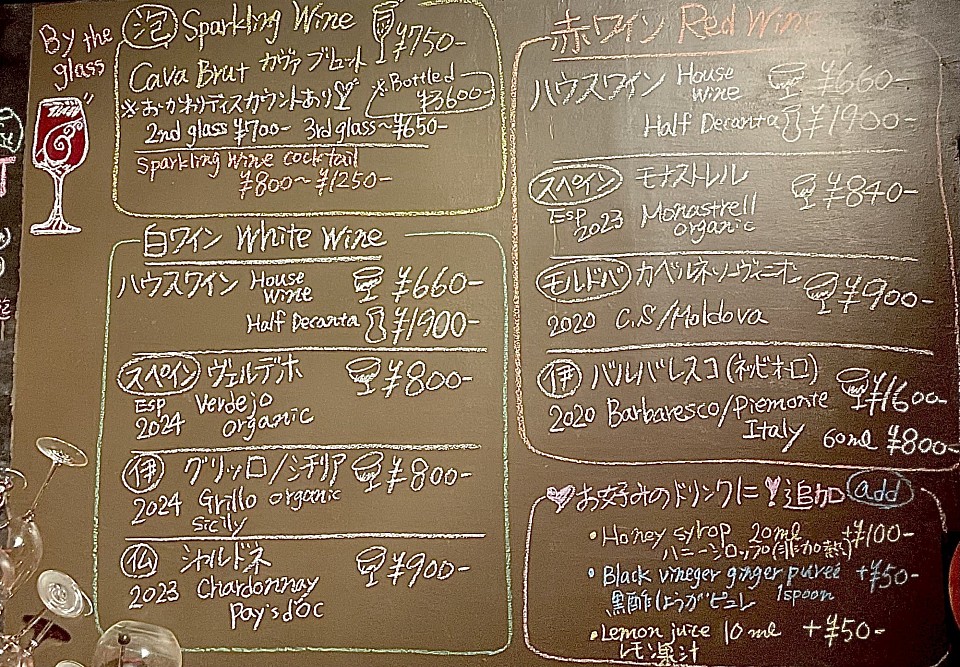 By the
glass
泡 Sparkling Wine ¥750-
Cava Brut カヴァ ブリュット
※おかわりディスカウントあり
※Bottled
¥3600-
2nd glass ¥700- 3rd glass~¥650-
Sparkling wine cocktail
¥800~¥1250-
白ワイン White Wine
ハウスワイン House wine ¥660-
Half Decanta ¥1900-
スペイン ヴェルデホ ¥800-
ESP Verdejo
2024 organic
伊 グリッロ/シチリア ¥800-
2024 Grillo organic
Sicily
仏 シャルドネ ¥900-
2023 Chardonnay
Pay's d'OC
赤ワイン Red Wine
ハウスワイン House wine ¥660-
Half Decanta ¥1900-
スペイン モナストレル ¥840-
ESP 2023 Monastrell
organic
モルドバ カベルネソーヴィニオン ¥900-
2020 C.S/Moldova
伊 バルバレスコ(ネッビオーロ) ¥1600-
2020 Barbaresco/Piemonte
Italy 60ml ¥800-
お好みのドリンクに 追加 add
・Honey syrop 20ml +¥100-
ハニーシロップ(非加熱)
・Black vineger ginger puree +¥50-
黒酢しょうがピュレ 1spoon
・Lemon juice 10ml +¥50-
レモン果汁